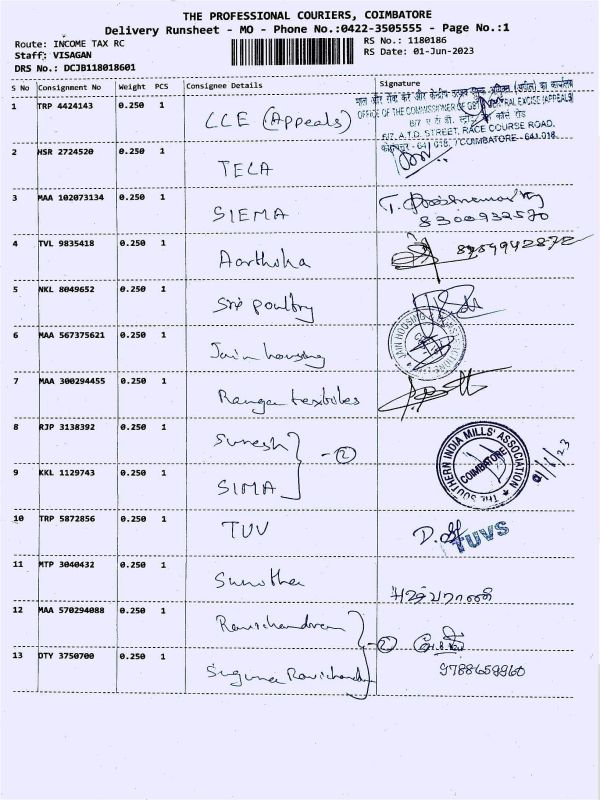 THE PROFESSIONAL COURIERS, COIMBATORE
Delivery Runsheet - MO - Phone No.:0422-3505555 - Page No.:1
Route: INCOME TAX RC
RS No.: 1180186
Staff: VISAGAN
RS Date: 01-Jun-2023
DRS No.: DCJB118018601
S No Consignment No Weight PCS Consignee Details Signature
1 TRP 4424143 0.250 1 CCE (Appeals)
OFFICE OF THE COMMISSIONER OF GST CENTRAL EXCISE (APPEALS)
6/7, A.T.D. STREET, RACE COURSE ROAD,
COIMBATORE - 641 018.
2 HSR 2724520 0.250 1 TELA
3 MAA 102073134 0.250 1 SIEMA
8300932570
4 TVL 9835418 0.250 1 Aarthika
5 NKL 8049652 0.250 1 Sri poultry
6 MAA 567375621 0.250 1 Jain housing
JAIN HOUSING
7 MAA 300294455 0.250 1 Ranga textiles
8 RJP 3138392 0.250 1 Suresh - 2
THE SOUTHERN INDIA MILLS' ASSOCIATION
COIMBATORE
01/6/23
9 KKL 1129743 0.250 1 SIMA
10 TRP 5872856 0.250 1 TUV
TUVS
11 MTP 3040432 0.250 1
12 MAA 570294088 0.250 1 Ravichandran - 2
13 DTY 3750700 0.250 1 Suguna Ravichandran